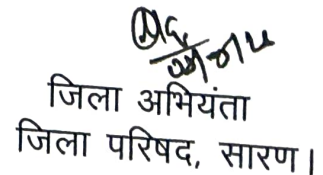 जिला अभियंता
जिला परिषद, सारण।